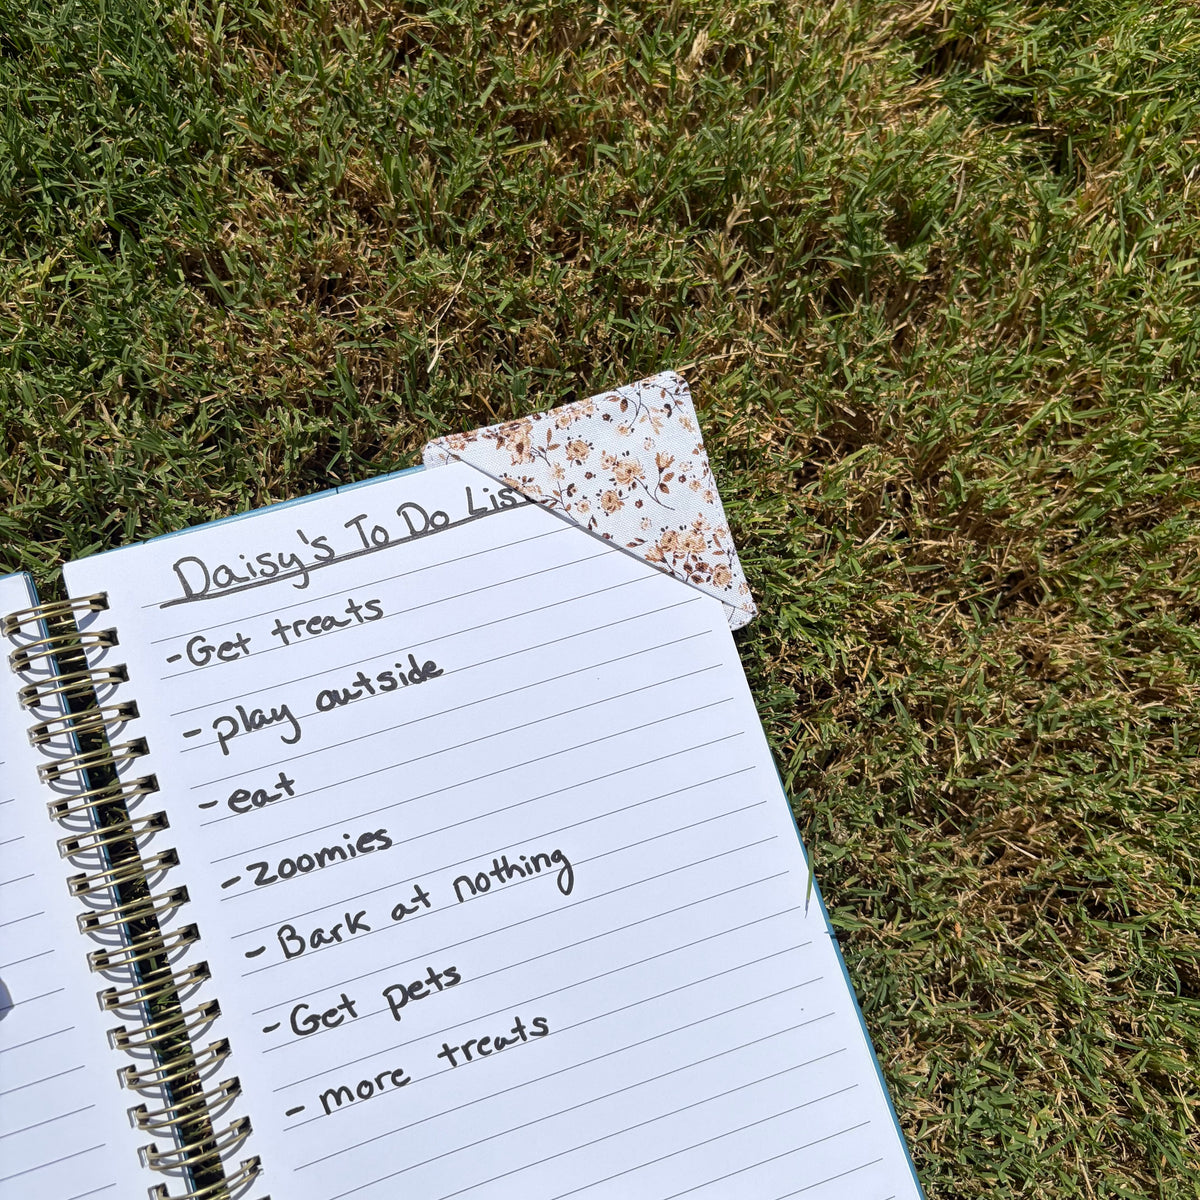 Daisy's To Do List
- Get treats
- play outside
- eat
- zoomies
- Bark at nothing
- Get pets
- more treats